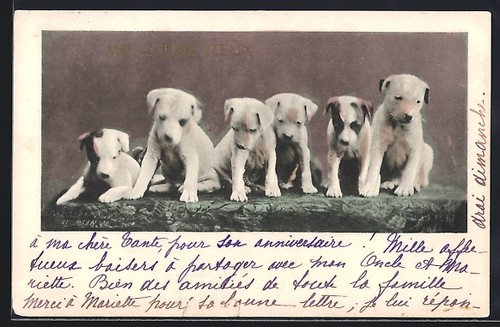 MEILLEURS VŒUX
à ma chère Tante, pour son anniversaire ! Mille affec-
tueux baisers à partager avec mon Oncle et Ma-
riette. Bien des amitiés de toute la famille
Merci à Mariette pour sa bonne lettre ; je lui répon-
drai dimanche.